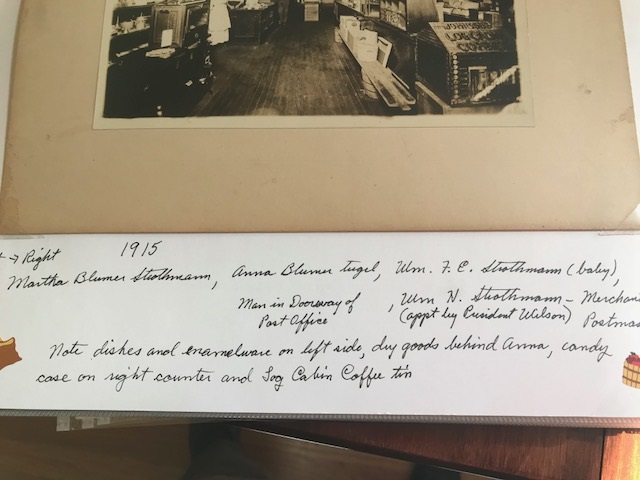 LOG CABIN
COFFEE
→ Right 1915
Martha Blumer Strothmann, Anna Blumer Tugel, Wm. F. C. Strothmann (baby),
Man in Doorway of , Wm N. Strothmann – Merchan
Post Office (appt by President Wilson) Postmas
Note dishes and enamelware on left side, dry goods behind Anna, candy
case on right counter and Log Cabin Coffee tin